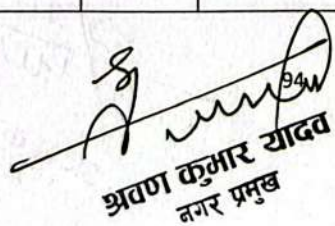 94
श्रवण कुमार यादव
नगर प्रमुख